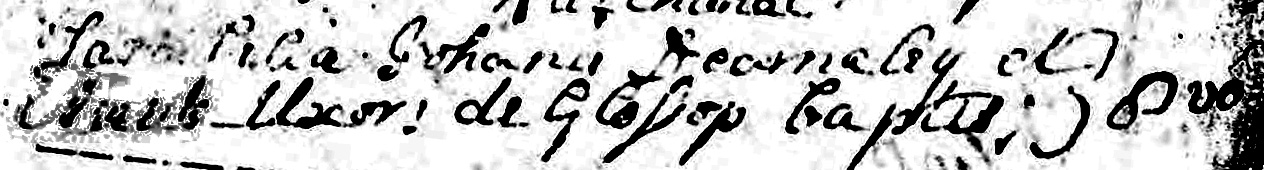 Sara filia Johanis Dearnaley et
Uxor: de Glossop bapts: 8vo